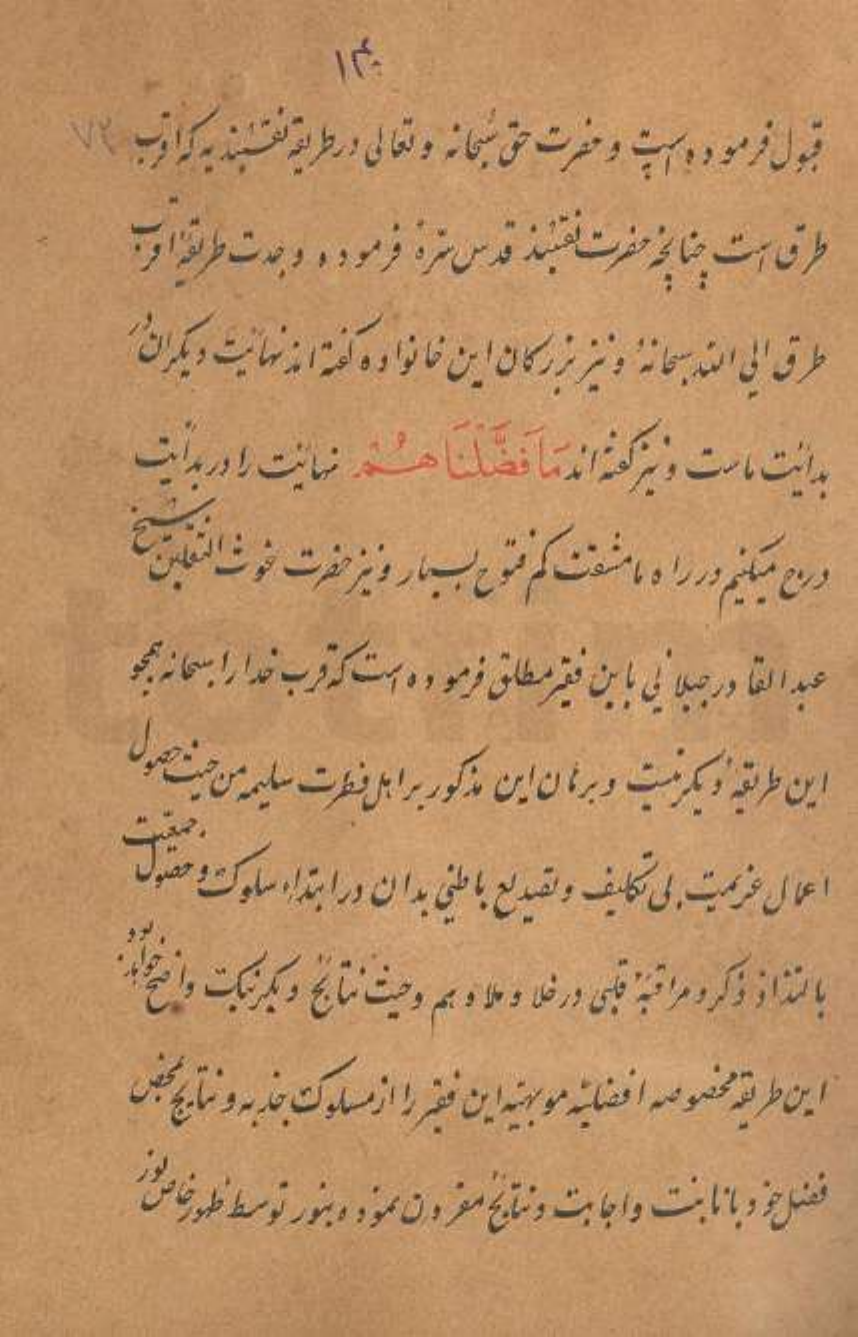 ۱۴۰
۷۲
قبول فرموده است و حضرت حق سبحانه و تعالی در طریقه نقشبندیه که اقرب
طرق است چنانچه حضرت نقشبند قدس سره فرموده وجدت طریقة اقرب
طرق الی الله سبحانهٔ و نیز بزرکان این خانواده کفته اند نهائیت دیکران در
بدائیت ماست و نیز کفته اند مَا فَضَّلْنَا هُمْ نهائیت را در بدائیت
درج میکنیم در راه ما مشقت کم فتوح بسیار و نیز حضرت غوث الثقلین شیخ
عبد القادر جیلانی باین فقیر مطلق فرموده است که قرب خدا را سبحانه همچو
این طریقهٔ دیکر نیست و برهان این مذکور بر اهل فطرت سلیمه من حیث حصول
اعمال عزیمت بی تکلیف و تصدیع باطنی بدان در ابتداء سلوک و حصول جمعیت
بالتذاذ ذکر و مراقبهٔ قلبی در خلا و ملا و هم وحیث نتائج دیکر نیک واضح خواهد بود
این طریقه مخصوصه افضلیه موهبیه این فقیر را از مسلوک جذبه و نتایج محض
فضل خود بانابت و اجابت و نتائج مقرون نموده بنور توسط ظهور خاص نور